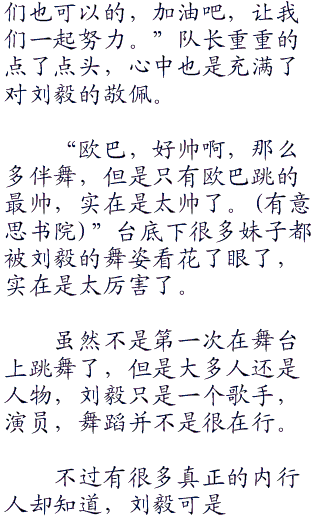 们也可以的，加油吧，让我
们一起努力。”队长重重的
点了点头，心中也是充满了
对刘毅的敬佩。
“欧巴，好帅啊，那么
多伴舞，但是只有欧巴跳的
最帅，实在是太帅了。(有意
思书院)”台底下很多妹子都
被刘毅的舞姿看花了眼了，
实在是太厉害了。
虽然不是第一次在舞台
上跳舞了，但是大多人还是
人物，刘毅只是一个歌手，
演员，舞蹈并不是很在行。
不过有很多真正的内行
人却知道，刘毅可是